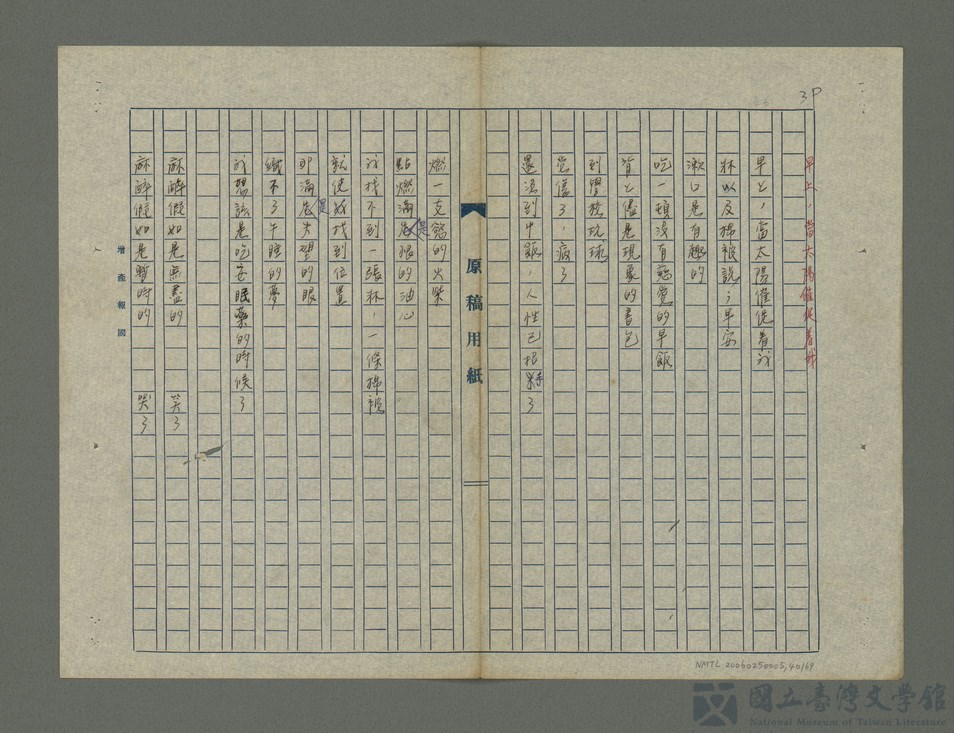 3P
早上,當太陽催促着我
早上,當太陽催促着我
牀以及棉被說:早安
漱口是有趣的
吃一頓沒有感覺的早飯
背上儘是現象的書包
到學校玩球
瘋了
還沒到中飯,人性已根絕了
原稿用紙
燃一支慾的火柴
點燃滿是眼的油心
我找不到一張牀,一條棉被
就使我找到位置
那滿是失望的眼
織不了午睡的夢
我想該是吃安眠藥的時候了
麻醉假如是無盡的 笑了
麻醉假如是暫時的 哭了
增產報國
NMTL 20060250005,40/69
國立臺灣文學館
National Museum of Taiwan Literature